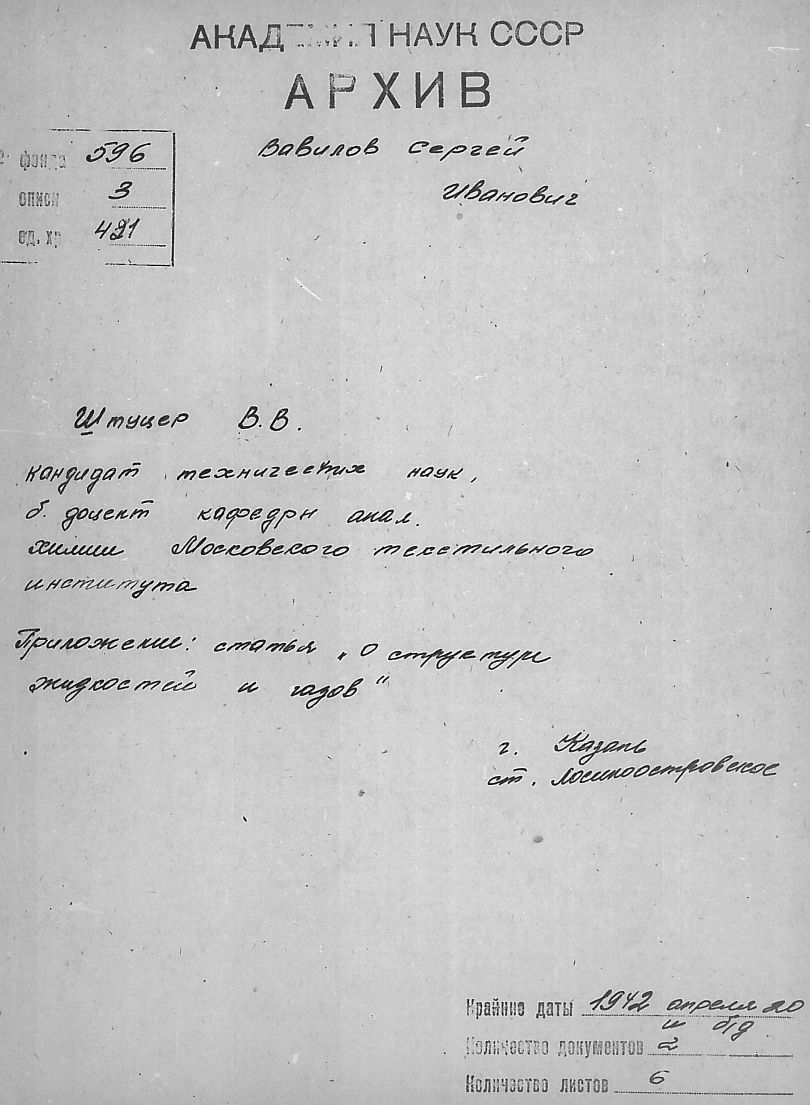 АКАДЕМИЯ НАУК СССР
АРХИВ
Вавилов Сергей
Иванович
№ фонда 596
описи 3
ед. хр 421
Штуцер В.В.
кандидат технических наук,
б. доцент кафедры анал.
химии Московского текстильного
института
Приложение: статья „О структуре
жидкостей и газов"
г. Казань
ст. Лосиноостровское
Крайние даты 1942 апреля 20
и б/д
Количество документов 2
Количество листов 6